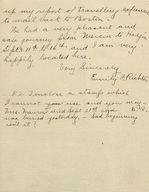 up my report of travelling expenses
to mail back to Boston.
We had a very pleasant and
safe journey from Mersin to Haifa,
Sept. 11th to 16th, and I am very
happily located here.
Very Sincerely,
Emily
P.S. Enclose a stamp which
I cannot you use and you may.
died Sept 21st
was buried yesterday - sad beginning
isn't it!